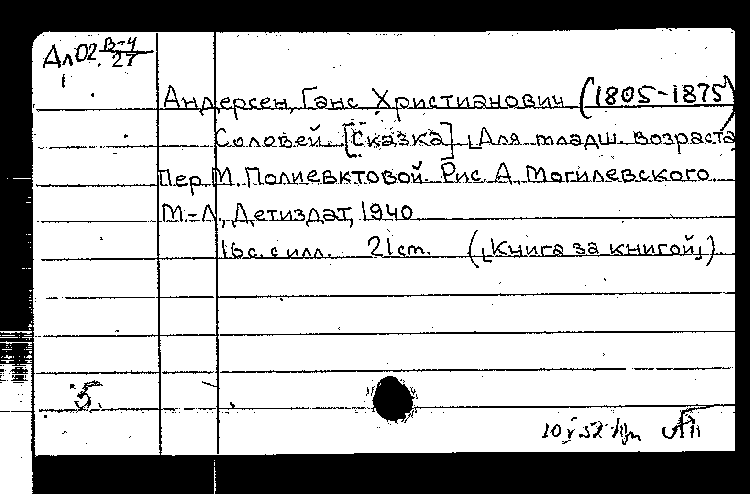 Ал02 В-4/27
Андерсен, Ганс Христианович (1805-1875)
Соловей. [Сказка] „Для младш. возраста
Пер. М. Полиевктовой. Рис. А. Могилевского.
М.-Л., Детиздат, 1940
16с. с илл. 21 cm. („Книга за книгой").
5.
10 V 52